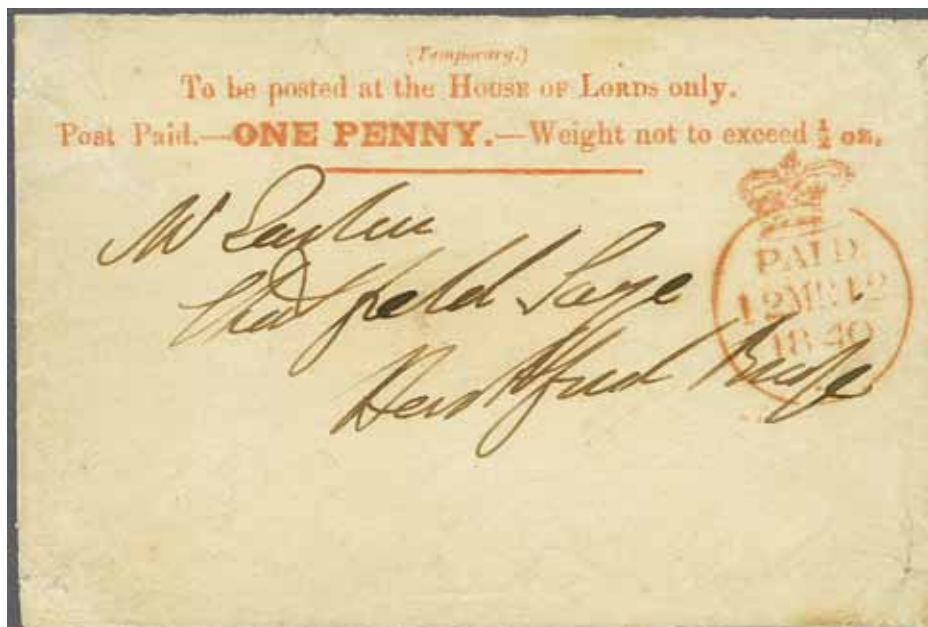 (Temporary.)
To be posted at the HOUSE OF LORDS only.
Post Paid.—ONE PENNY.—Weight not to exceed ½ oz.
Mr
Strathfield Saye
Hartford Bridge
PAID
12 MR 12
1840